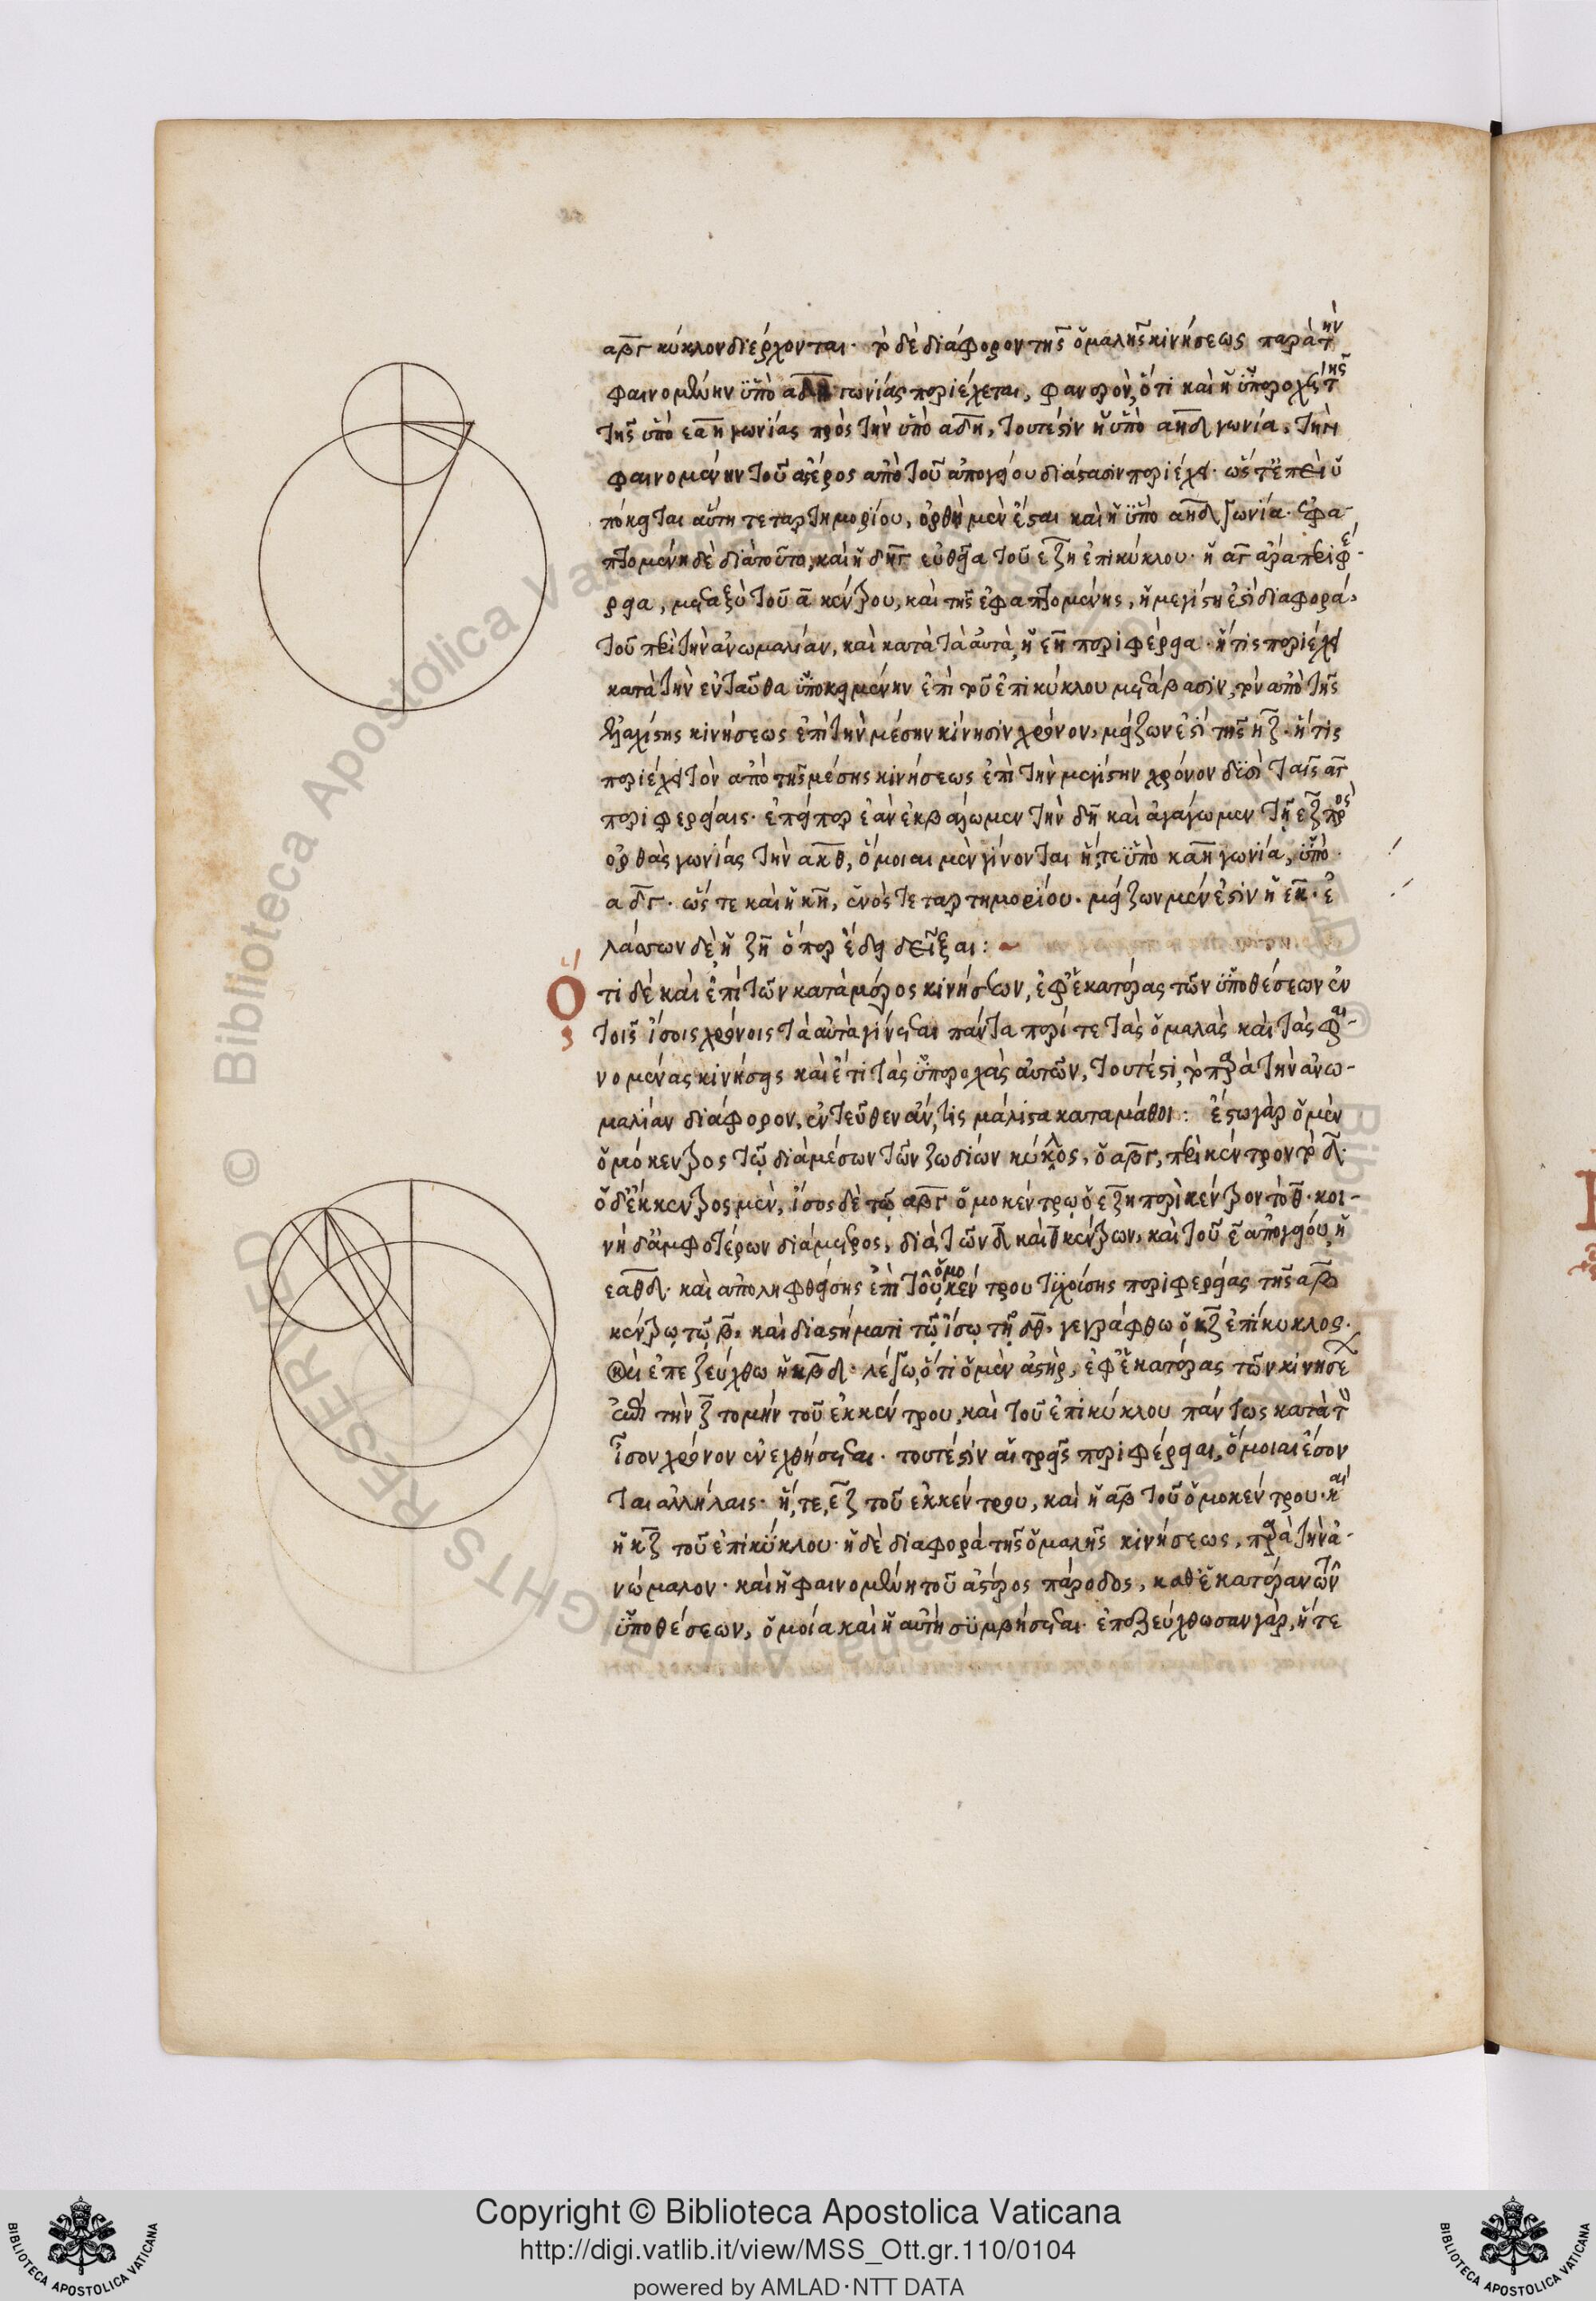 αβγ κύκλον διέρχονται· τὸ δὲ διάφορον τῆς ὁμαλῆς κινήσεως παρὰ τὴν
φαινομένην ὑπὸ αδη γωνίας περιέχεται, φανερὸν, ὅτι καὶ ἡ ὑπεροχὴ τῆς
τῆς ὑπὸ εαη γωνίας πρὸς τὴν ὑπὸ αδη, τουτέστιν ἡ ὑπὸ αηδ γωνία, τὴν
φαινομένην τοῦ ἀστέρος ἀπὸ τοῦ ἀπογείου διάστασιν περιέχει· ὥστ' ἐπεὶ ὑ
πόκειται αὕτη τεταρτημορίου, ὀρθὴ μὲν ἔσται καὶ ἡ ὑπὸ αηδ γωνία· ἐφα-
πτομένη δὲ διὰ τοῦτο, καὶ ἡ δηγ εὐθεῖα τοῦ εζη ἐπικύκλου· ἡ αγ ἄρα περιφέ-
ρεια, μεταξὺ τοῦ α κέντρου, καὶ τῆς ἐφαπτομένης, ἡ μεγίστη ἐστὶ διαφορά,
τοῦ περὶ τὴν ἀνωμαλίαν, καὶ κατὰ τὰ αὐτὰ, ἡ εη περιφέρεια· ἥτις περιέχει
κατὰ τὴν ἐνταῦθα ὑποκειμένην ἐπὶ τοῦ ἐπικύκλου μετάβασιν, τὸν ἀπὸ τῆς
ἐλαχίστης κινήσεως ἐπὶ τὴν μέσην κίνησιν χρόνον, μείζων ἐστὶ τῆς ηζ· ἥτις
περιέχει τὸν ἀπὸ τῆς μέσης κινήσεως ἐπὶ τὴν μεγίστην χρόνον δϊσὶ ταῖς αγ
περιφερείαις· ἐπείπερ ἐὰν ἐκβάλωμεν τὴν δη καὶ ἀγάγωμεν τῇ εζ πρὸς
ὀρθὰς γωνίας τὴν ακθ, ὅμοιαι μὲν γίνονται ἥ, τε ὑπὸ καη γωνία, ὑπὸ
αδγ· ὥστε καὶ ἡ κη, ἑνὸς τεταρτημορίου· μείζων μέν ἐστιν ἡ εκ· ἐ
λάσσων δὲ ἡ ζη ὅπερ ἔδει δεῖξαι:
Ὅτι δὲ καὶ ἐπὶ τῶν κατὰ μέρος κινήσεων, ἐφ' ἑκατέρας τῶν ὑποθέσεων ἐν
τοῖς ἴσοις χρόνοις τὰ αὐτὰ γίνεται πάντα περί τε τὰς ὁμαλὰς καὶ τὰς φαι-
νομένας κινήσεις καὶ ἔτι τὰς ὑπεροχὰς αὐτῶν, τουτέστι, τὸ παρὰ τὴν ἀνω-
μαλίαν διάφορον, ἐντεῦθεν ἄν, τις μάλιστα καταμάθοι: ἔστω γὰρ ὁ μὲν
ὁμόκεντρος τῷ διὰ μέσων τῶν ζωδίων κύκλος, ὁ αβγ, περὶ κέντρον τὸ δ·
ὁ δ' ἔκκεντρος μὲν, ἴσος δὲ τῷ αβγ ὁμοκέντρῳ ὁ εζη περὶ κέντρον τὸ θ· κοι-
νὴ δ' ἀμφοτέρων διάμετρος, διὰ τῶν δ καὶ θ κέντρων, καὶ τοῦ ε ἀπογείου, ἡ
εαθδ· καὶ ἀποληφθείσης ἐπὶ τοῦ ὁμοκέντρου τυχούσης περιφερείας τῆς αβ
κέντρῳ τῷ β, καὶ διαστήματι τῷ ἴσῳ τῇ δθ, γεγράφθω ὁ κζ ἐπίκυκλος·
καὶ ἐπεζεύχθω ἡ κβδ· λέγω, ὅτι ὁ μὲν ἀστὴρ, ἐφ' ἑκατέρας τῶν κινήσε
ἐπὶ τὴν ζ τομὴν τοῦ ἐκκέντρου, καὶ τοῦ ἐπικύκλου πάντως κατὰ τὸ
ἴσον χρόνον ἐνεχθήσεται· τουτέστιν αἱ τρεῖς περιφέρειαι, ὅμοιαι ἔσον
ται ἀλλήλαις· ἥ, τε, εζ τοῦ ἐκκέντρου, καὶ ἡ αβ τοῦ ὁμοκέντρου· καὶ
ἡ κζ τοῦ ἐπικύκλου· ἡ δὲ διαφορὰ τῆς ὁμαλῆς κινήσεως, παρὰ τὴν ἀ-
νώμαλον· καὶ ἡ φαινομένη τοῦ ἀστέρος πάροδος, καθ' ἑκατέραν τῶν
ὑποθέσεων, ὁμοία καὶ ἡ αὐτὴ συμβήσεται· ἐπεζεύχθωσαν γὰρ, ἥ τε
© Biblioteca Apostolica Vaticana
ALL RIGHTS RESERVED
Copyright © Biblioteca Apostolica Vaticana
http://digi.vatlib.it/view/MSS_Ott.gr.110/0104
powered by AMLAD·NTT DATA
BIBLIOTECA APOSTOLICA VATICANA
BIBLIOTECA APOSTOLICA VATICANA